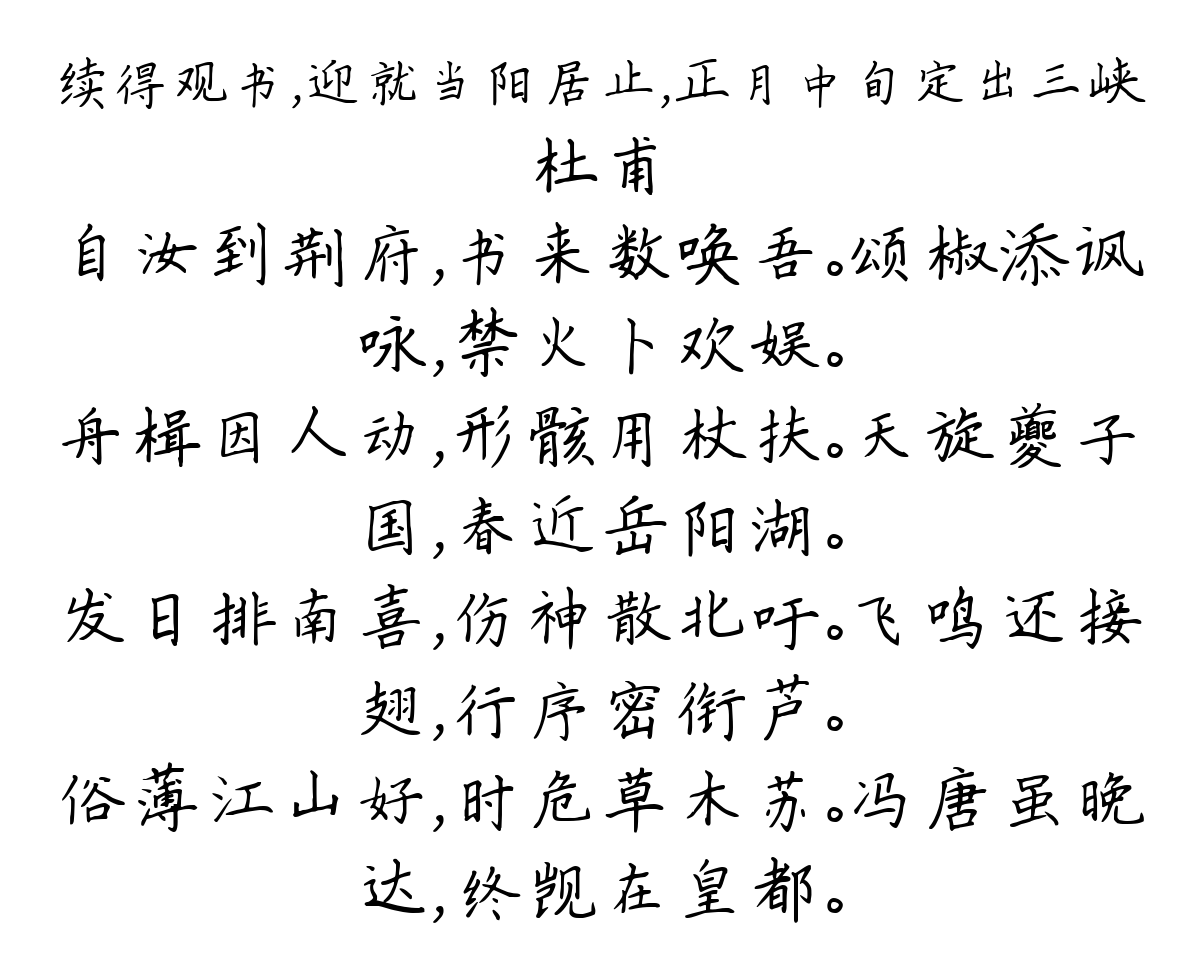 续得观书,迎就当阳居止,正月中旬定出三峡
杜甫
自汝到荆府,书来数唤吾。颂椒添讽
咏,禁火卜欢娱。
舟楫因人动,形骸用杖扶。天旋夔子
国,春近岳阳湖。
发日排南喜,伤神散北吁。飞鸣还接
翅,行序密衔芦。
俗薄江山好,时危草木苏。冯唐虽晚
达,终觊在皇都。